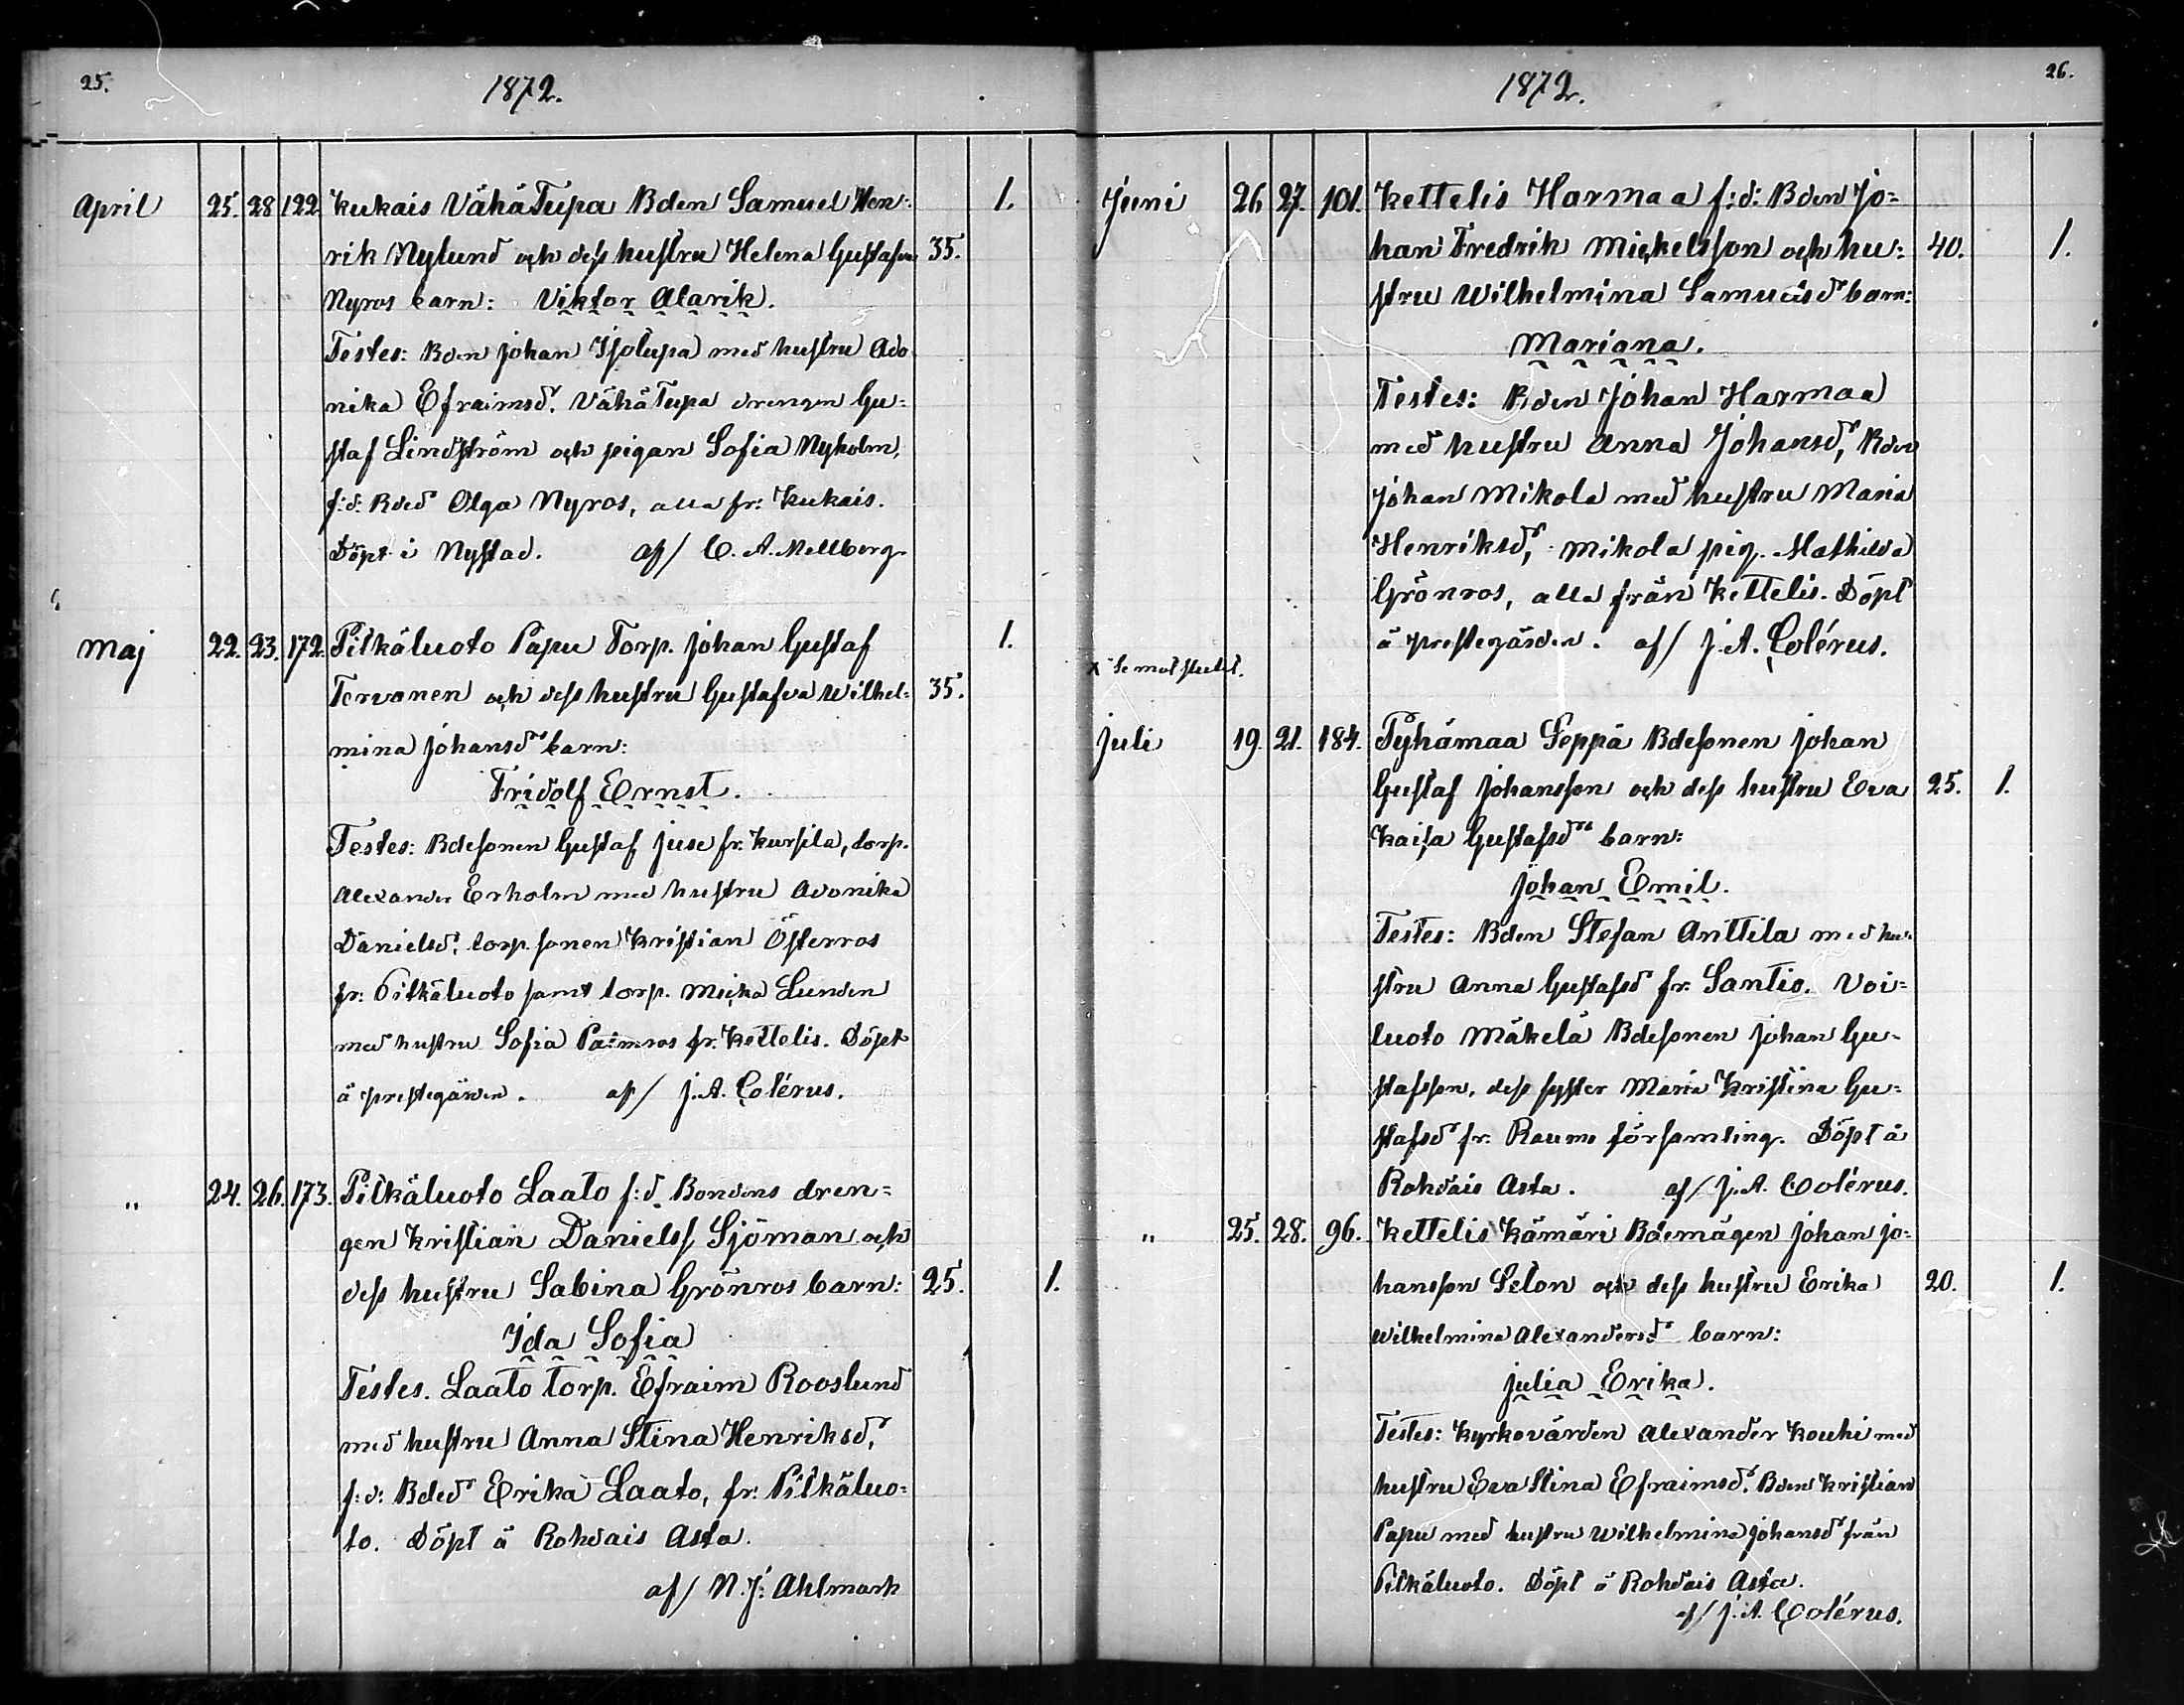 25.
1872.
April 25. 28 122 Kukais VähäTupa Bden Samuel Hen: 1.
rik Nylund och dess hustru Helena Gustafva 35.
Nyros barn: Viktor Alarik.
Testes: Bden Johan Isotupa med hustru Ado
nika Efraimsd:r VähäTupa drengen Gu:
staf Lindström och pigan Sofia Nyholm,
f:d: Bded Olga Nyros, alla fr: Kukais.
Döpt i Nystad. af/ C. A. Mellberg
Maj 22. 23. 172. Pitkäluoto Papu Torp. Johan Gustaf 1.
Tervonen och dess hustru Gustafva Wilhel: 35.
mina Johansd:r barn:
Fridolf Ernst.
Testes: Bdesonen Gustaf Juse fr: Kursila, torp.
Alexander Erholm med hustru Adonika
Danielsd:r torp. sonen Kristian Österros
fr: Pitkäluoto samt torp. Micka Lunden
med hustru Sofia Palmros fr. Kettelis. Döpt
å prestegården. af/ J. A. Colérus.
" 24. 26. 173. Pitkäluoto Laato f:d. Bondens dren=
gen Kristian Danielss. Sjöman och
dess hustru Sabina Grönros barn: 25. 1.
Ida Sofia
Testes. Laato torp. Efraim Rooslund
med hustru Anna Stina Henriksd:r
f:d: Bded:r Erika Laato, fr: Pitkäluo=
to. Döpt å Rohdais Asta.
af/ N. J: Ahlmark
26.
1872.
Juni 26 27. 101. Kettelis Harmaa f:d: Bden Jo=
han Fredrik Mickelsson och hu: 40. 1.
stru Wilhelmina Samuelsd:r barn:
Mariana.
Testes: Bden Johan Harmaa
med hustru Anna Johansd:r, Bden
Johan Mikola med hustru Maria
Henriksd:r, Mikola pig. Mathilda
Grönros, alla från Kettelis. Döpt
å prestegården. af/ J. A. Colérus.
x Se motstulet.
Juli 19. 21. 184. Pyhämaa Seppä Bdesonen Johan
Gustaf Johansson och dess hustru Eva 25. 1.
Kaisa Gustafsd:rs barn:
Johan Emil.
Testes: Bden Stefan Anttila med hu=
stru Anna Gustafsd:r fr: Santio. Voi=
luoto Mäkelä Bdesonen Johan Gu=
stafsson, dess syster Maria Kristina Gu=
stafsd:r fr: Raumo församling. Döpt å
Rohdais Asta. af/ J. A. Colérus.
" 25. 28. 96. Kettelis Kämäri Bdemågen Johan Jo=
hansson Selon och dess hustru Erika 20. 1.
Wilhelmina Alexandersd:r barn:
Julia Erika.
Testes: Kyrkovärden Alexander Kouhi med
hustru Eva Stina Efraimsd:r. Bden Kristian
Papu med hustru Wilhelmina Johansd:r från
Pitkäluoto. Döpt å Rohdais Asta.
af/ J. A. Colérus.